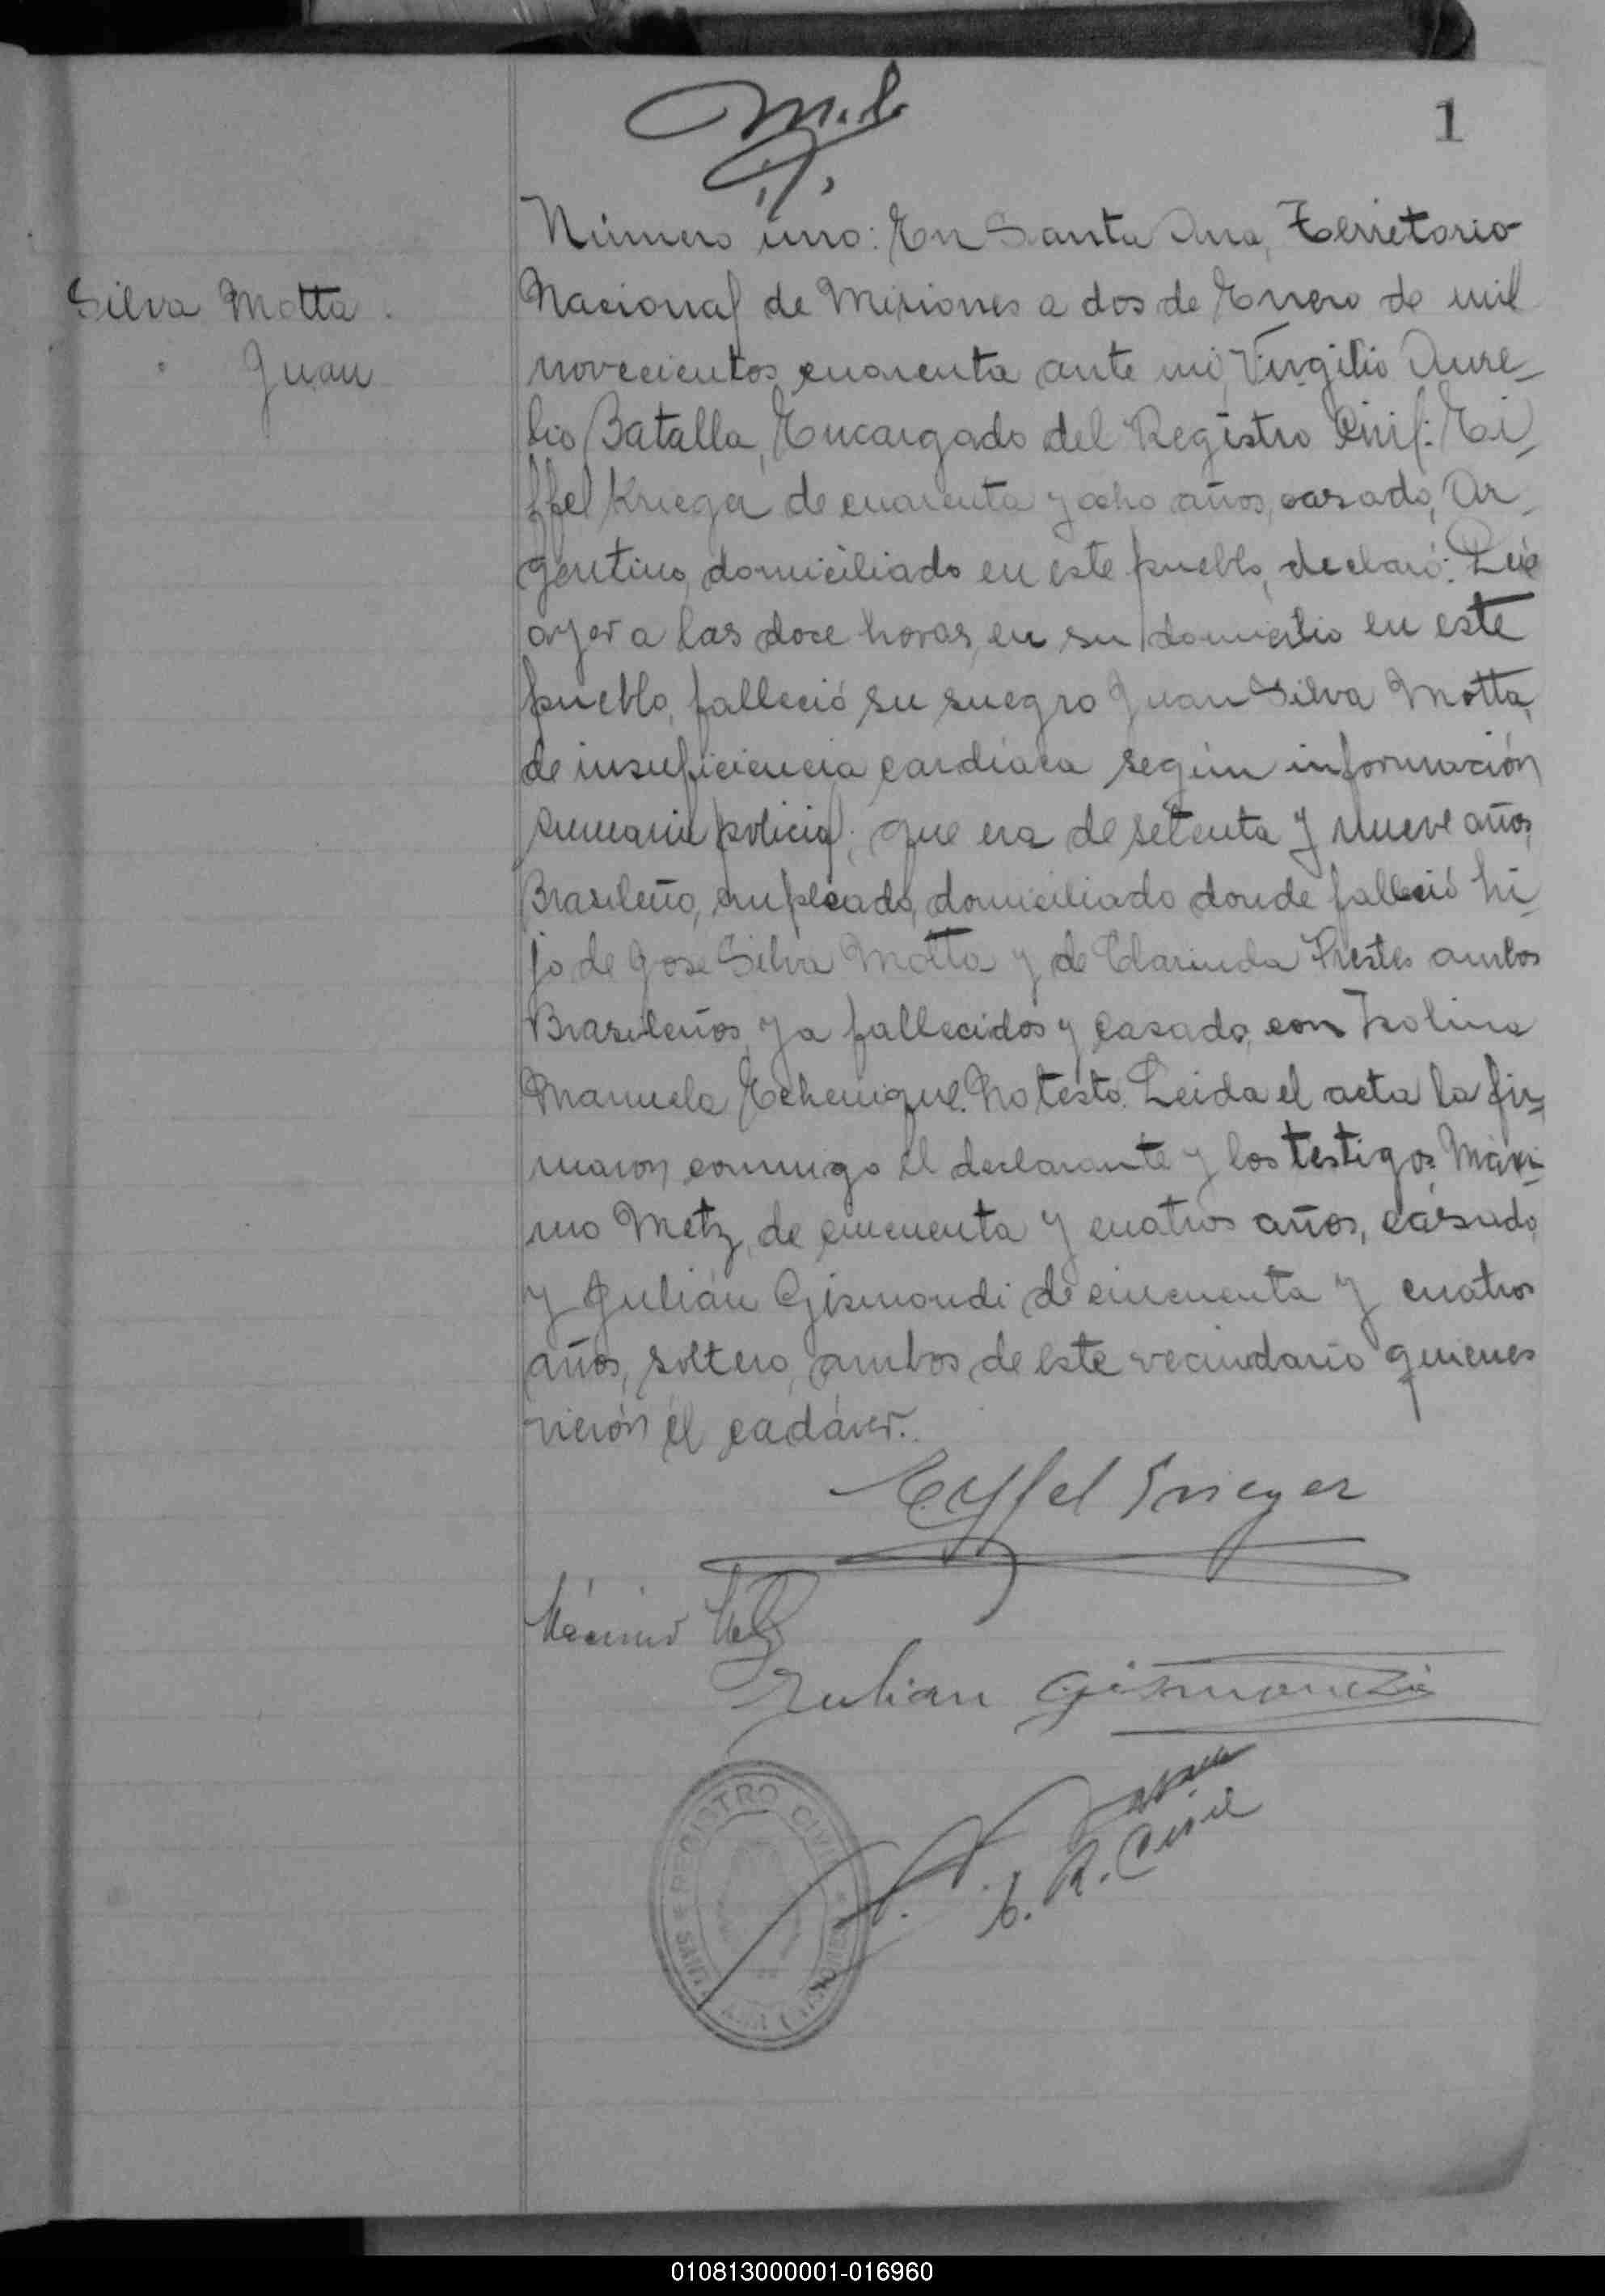 1
Número uno: En Santa Ana, Territorio
Silva Motta
Nacional de Misiones a dos de Enero de mil
Juan
novecientos cuarenta ante mi, Virgilio Aure-
lio Batalla, Encargado del Registro Civil: Ei-
ffel Krieger de cuarenta y ocho años, casado, Ar-
gentino, domiciliado en este pueblo, declaró: Que
ayer a las doce horas, en su domicilio en este
pueblo, falleció su suegro Juan Silva Motta,
de insuficiencia cardíaca según información
sumaria policial; que era de setenta y nueve años,
Brasileño, empleado, domiciliado donde falleció hi-
jo de Jose Silva Motta y de Clarinda Prestes ambos
Brasileños, ya fallecidos y casado, con Isolina
Manuela Echenique. No testo. Leida el acta la fir-
maron conmigo el declarante y los testigos Máxi-
mo Metz, de cincuenta y cuatros años, casado,
y Julián Gismondi de cincuenta y cuatros
años, soltero, ambos de este vecindario quienes
vierón él cadáver.
Eyffel Krieger
Máximo Metz
Julian Gismondi
E. R. Civil
REGISTRO CIVIL
SANTA ANA (MISIONES)
010813000001-016960